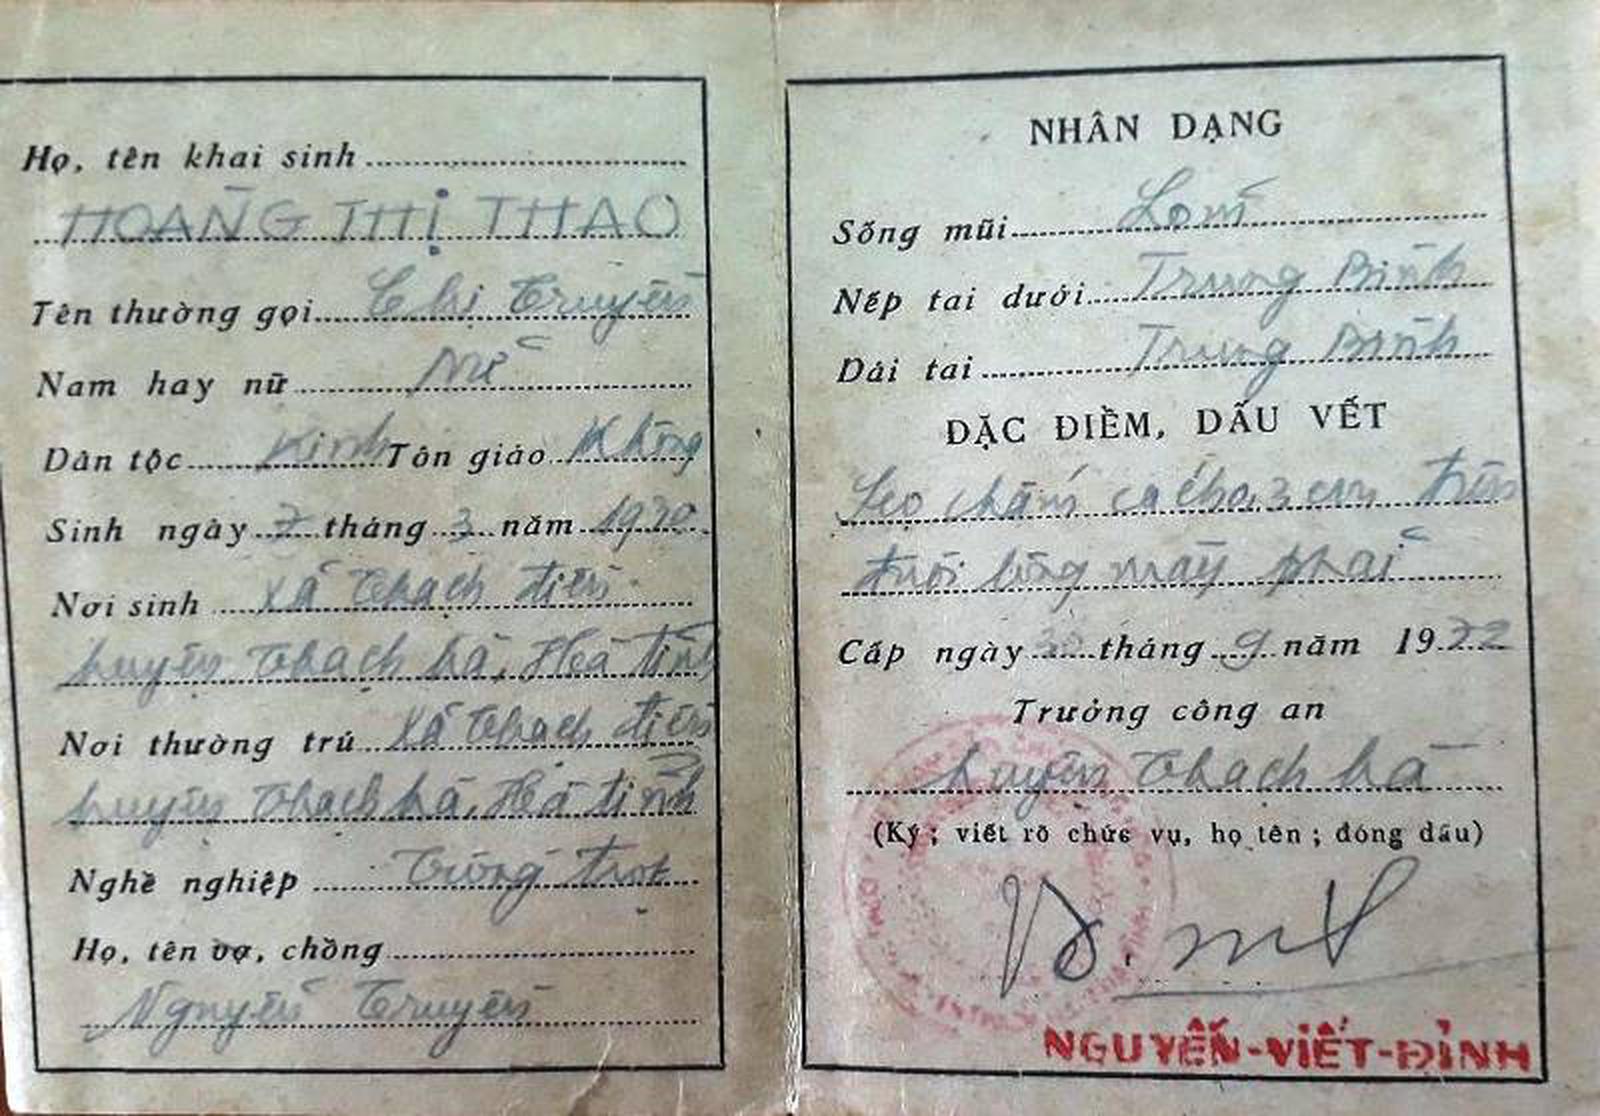 Họ, tên khai sinh
HOÀNG THỊ THAO
Tên thường gọi Chị Truyền
Nam hay nữ Nữ
Dân tộc Kinh Tôn giáo Không
Sinh ngày 7 tháng 3 năm 1930
Nơi sinh xã Thạch điền
huyện Thạch hà, Hà tĩnh
Nơi thường trú xã Thạch điền
huyện Thạch hà, Hà tĩnh
Nghề nghiệp Trồng trọt
Họ, tên vợ, chồng
Nguyễn Truyền
NHÂN DẠNG
Sống mũi Lõm
Nếp tai dưới Trung Bình
Dái tai Trung Bình
ĐẶC ĐIỂM, DẤU VẾT
Sẹo chấm cách 3 cm trên
đuôi lông mày phải
Cấp ngày tháng 9 năm 19
Trưởng công an
huyện Thạch hà
(Ký; viết rõ chức vụ, họ tên; đóng dấu)
NGUYỄN-VIẾT-ĐỈNH